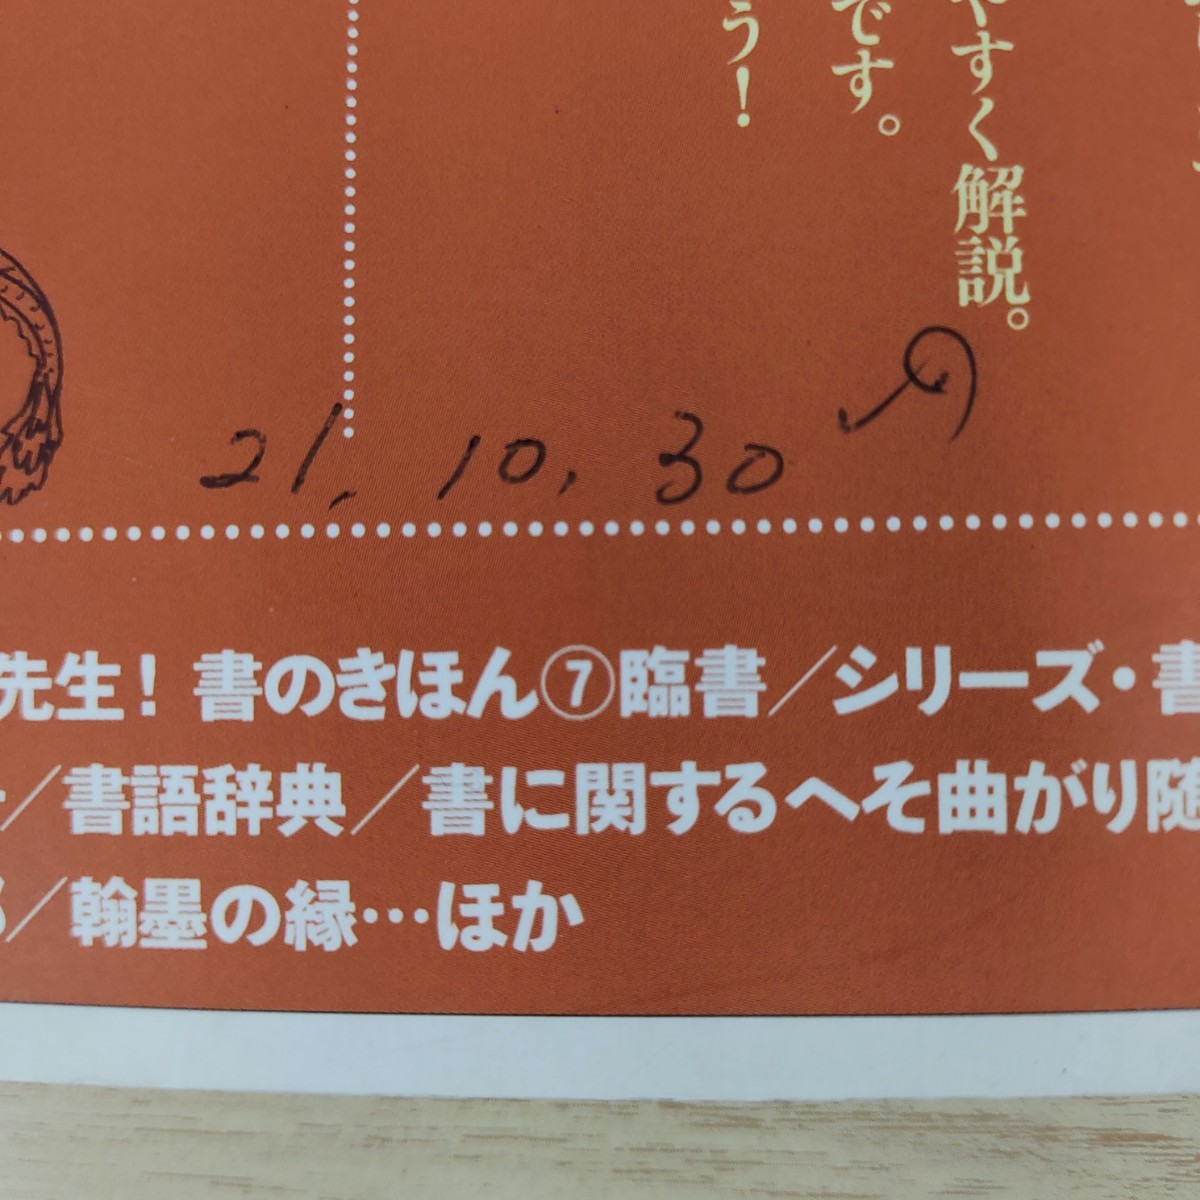 やすく解説。
です。
う！
21. 10. 30
先生！ 書のきほん⑦臨書／シリーズ・書
／書語辞典／書に関するへそ曲がり随
／翰墨の縁…ほか